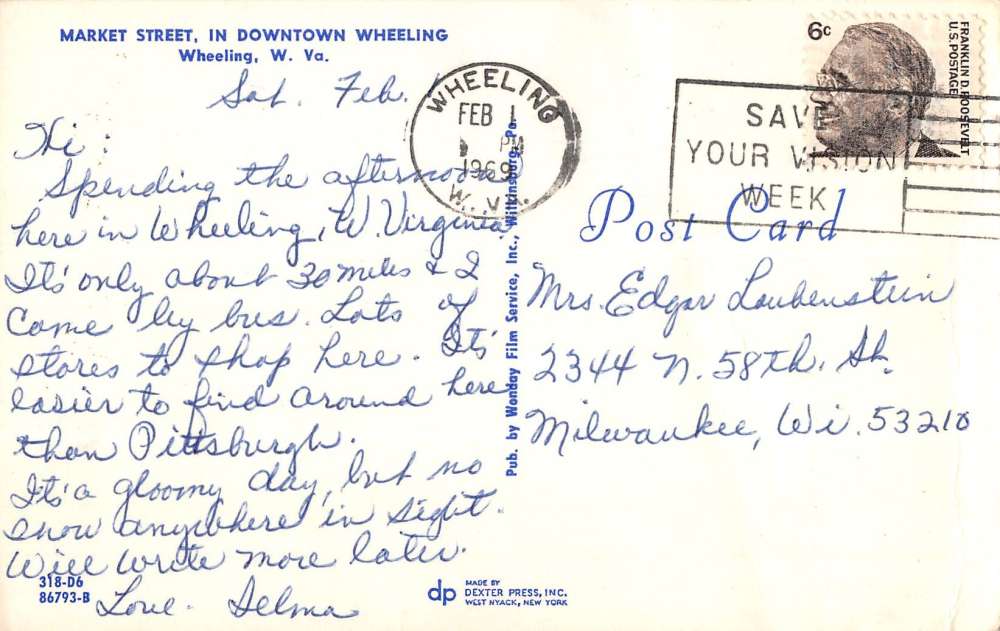 MARKET STREET, IN DOWNTOWN WHEELING
Wheeling, W. Va.
Sat. Feb.
Hi:
Spending the afternoon
here in Wheeling, W. Virginia.
It's only about 30 miles & I
came by bus. Lots of
stores to shop here. It's
easier to find around here
than Pittsburgh.
It's a gloomy day, but no
snow anywhere in sight.
Will write more later.
Love. Selma
318-D6
86793-B
WHEELING
FEB 1
PM
1969
W. VA.
Pub. by Wonday Film Service, Inc., Wilkinsburg, Pa.
dp
MADE BY
DEXTER PRESS, INC.
WEST NYACK, NEW YORK
6c
FRANKLIN D. ROOSEVELT
U.S. POSTAGE
SAVE
YOUR VISION
WEEK
Post Card
Mrs. Edgar Laubenstein
2344 N. 58th. St.
Milwaukee, Wi. 53210